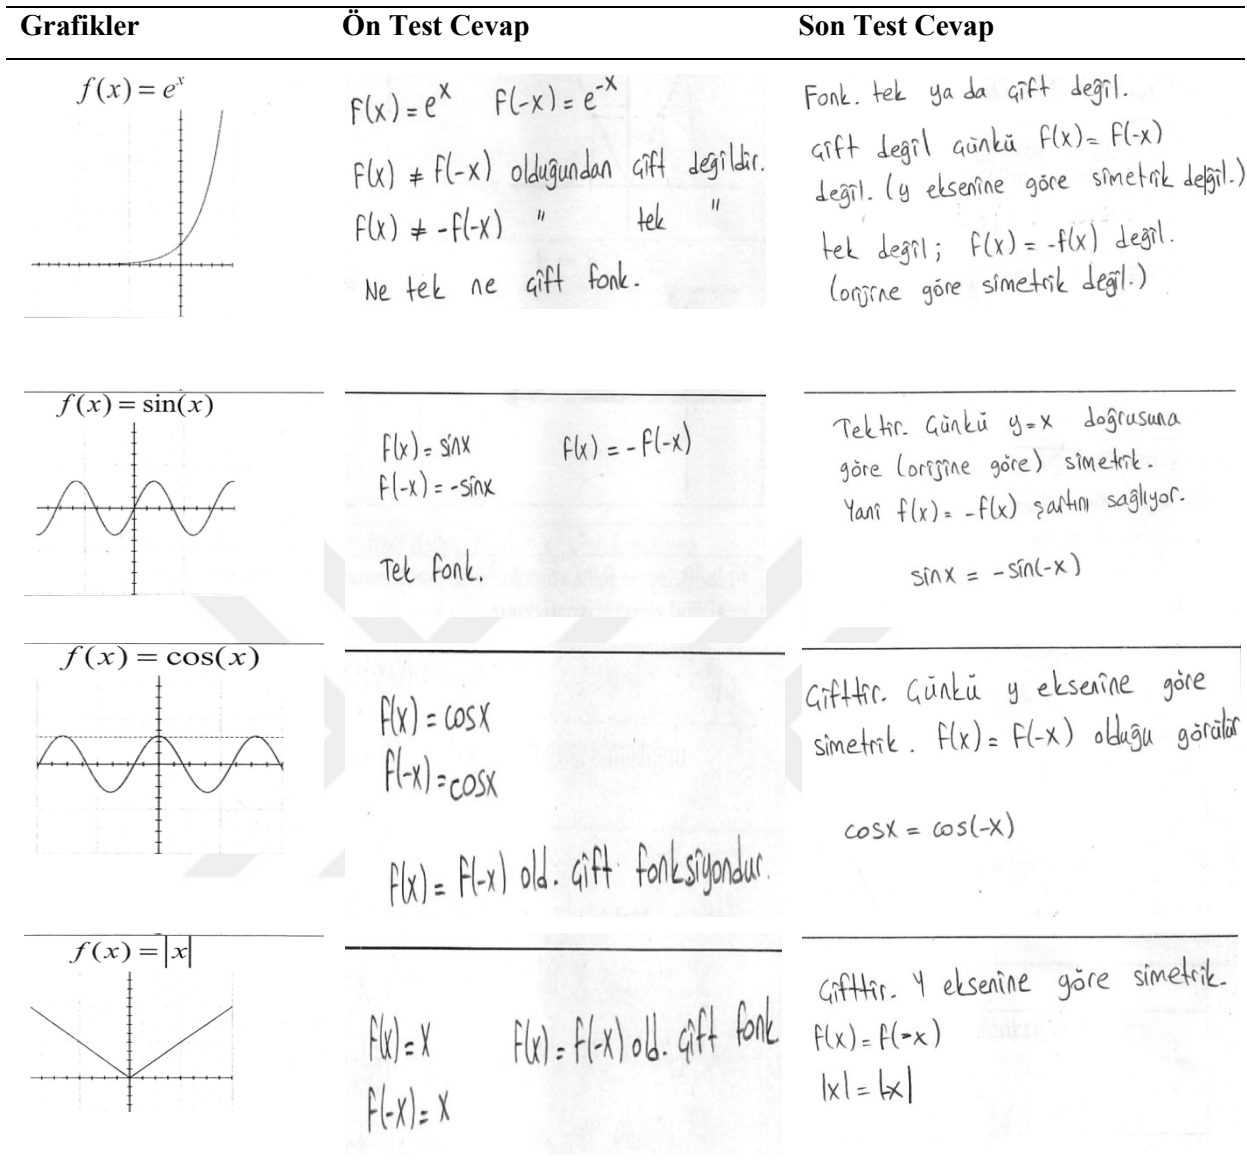 Grafikler Ön Test Cevap Son Test Cevap
f(x) = e^x
F(x) = e^x F(-x) = e^-x
F(x) ≠ F(-x) olduğundan çift değildir.
F(x) ≠ -f(-x) " tek "
Ne tek ne çift fonk.
Fonk. tek ya da çift değil.
Çift değil çünkü F(x) = F(-x)
değil. (y eksenine göre simetrik değil.)
tek değil; F(x) = -f(x) değil.
(orijine göre simetrik değil.)
f(x) = sin(x)
F(x) = sinx f(x) = -F(-x)
F(-x) = -sinx
Tek fonk.
Tektir. Çünkü y=x doğrusuna
göre (orijine göre) simetrik.
Yani f(x) = -f(x) şartını sağlıyor.
sinx = -sin(-x)
f(x) = cos(x)
f(x) = cosx
f(-x) = cosx
f(x) = F(-x) old. çift fonksiyondur.
Çifttir. Çünkü y eksenine göre
simetrik. F(x) = F(-x) olduğu görülür
cosx = cos(-x)
f(x) = |x|
f(x) = x f(x) = f(-x) old. çift fonk
f(-x) = x
Çifttir. Y eksenine göre simetrik.
f(x) = f(-x)
|x| = |-x|